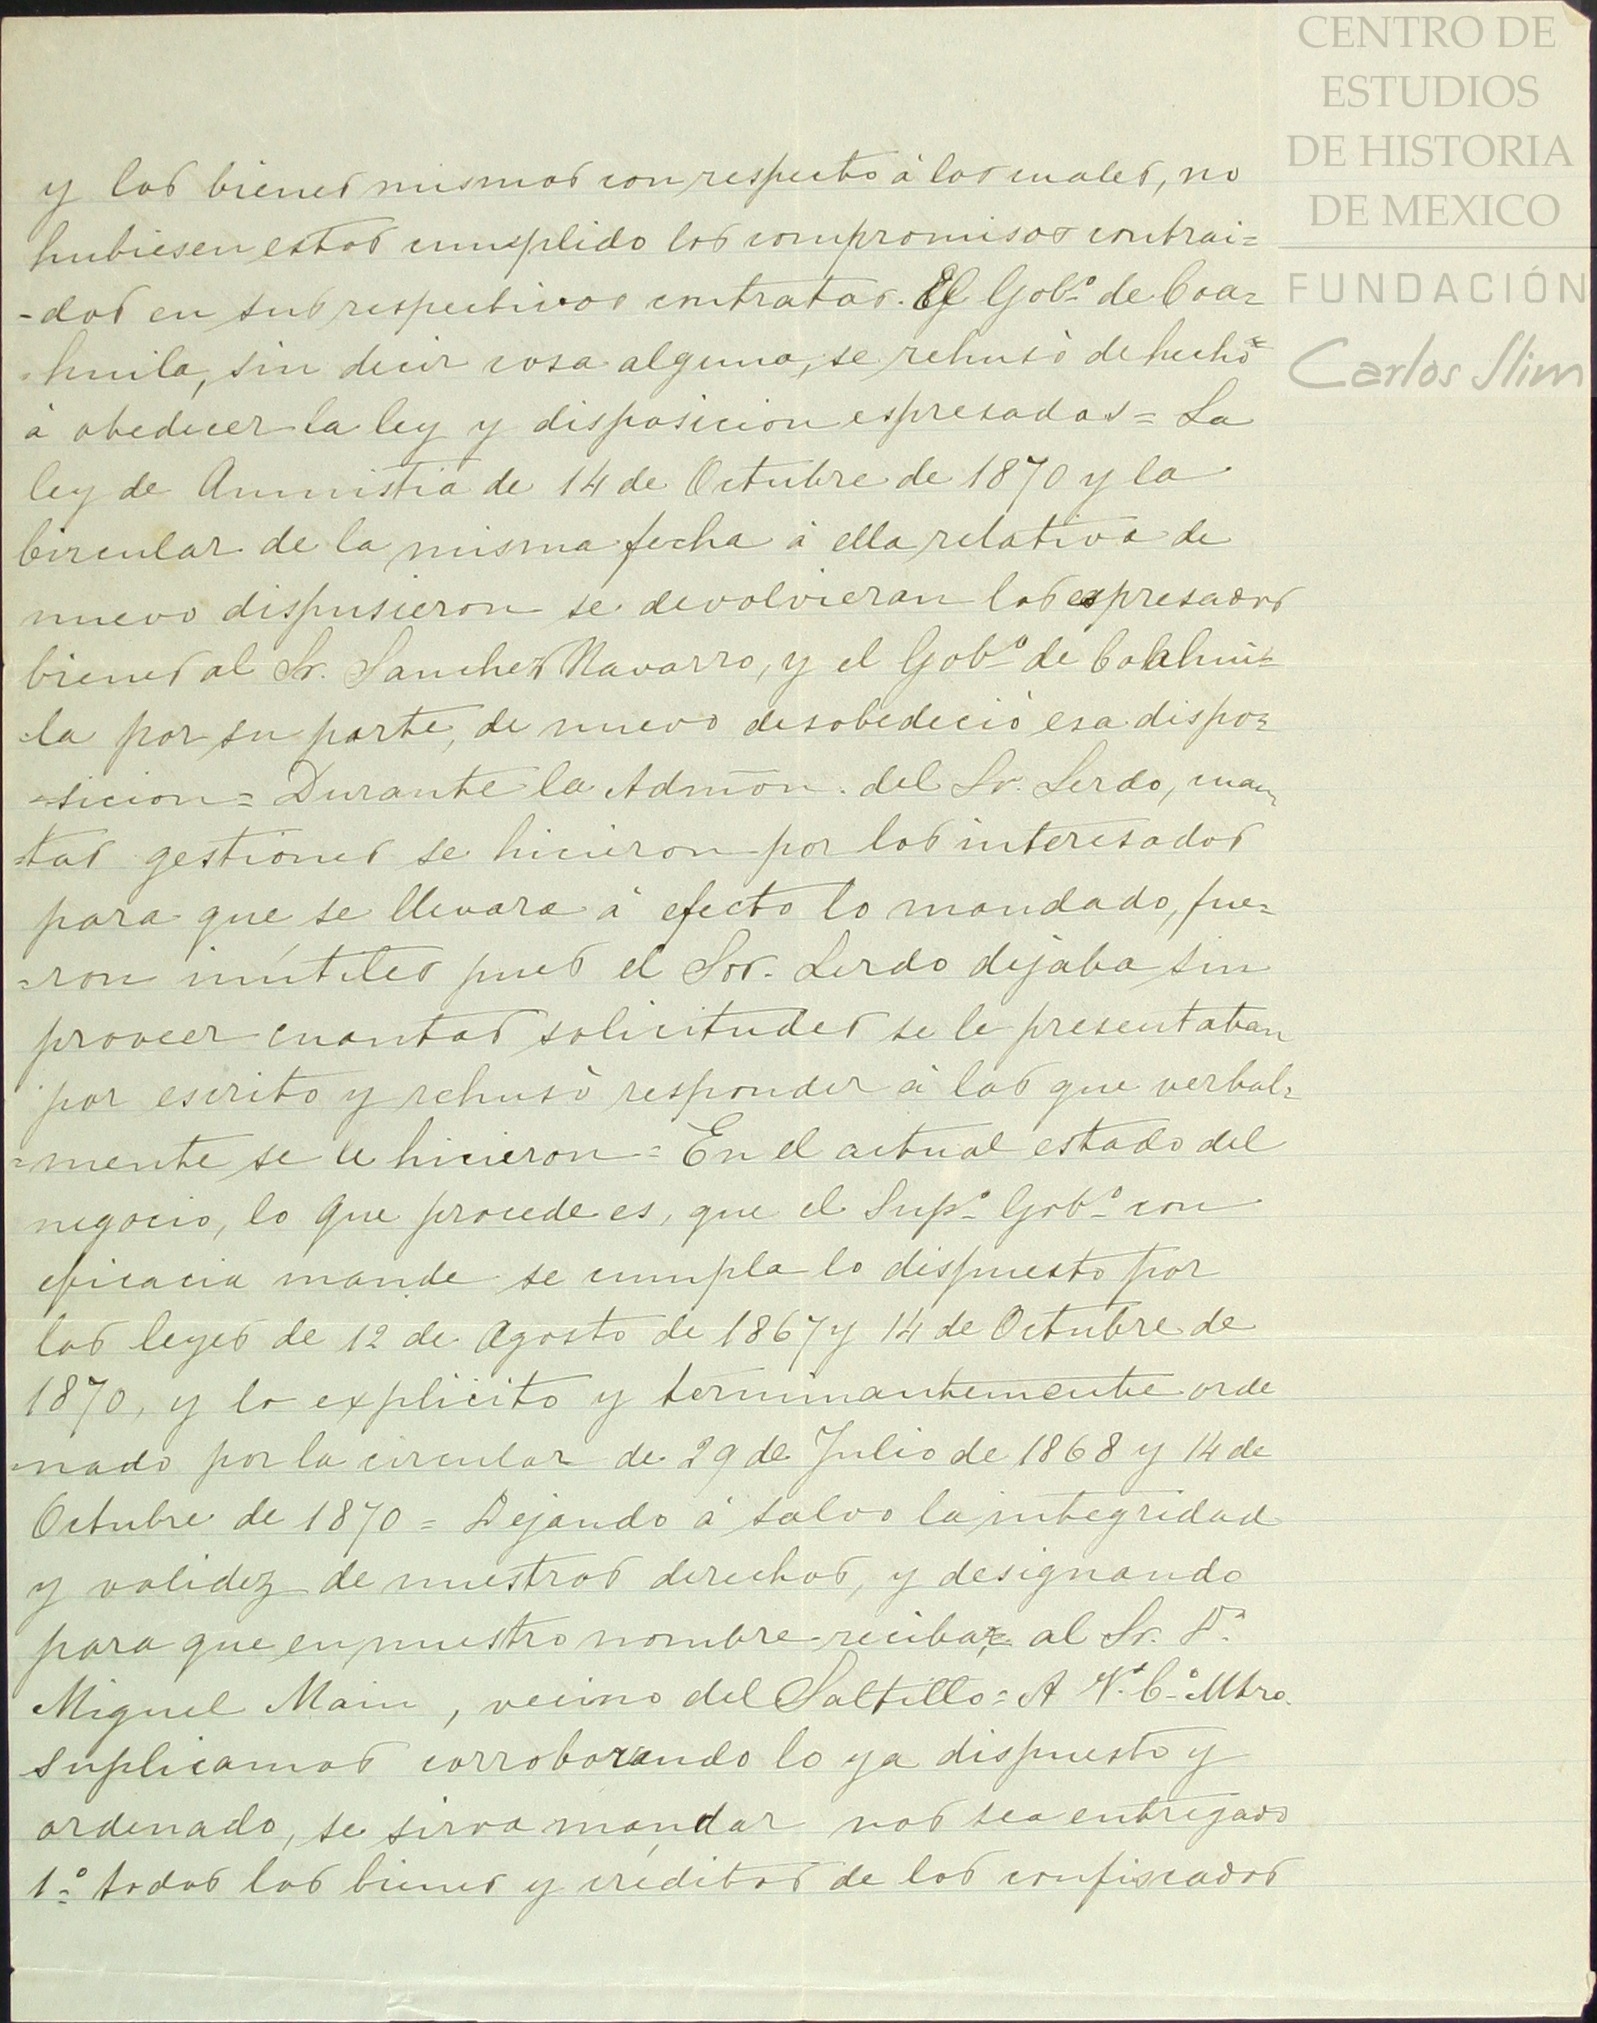 CENTRO DE
ESTUDIOS
DE HISTORIA
DE MEXICO
FUNDACIÓN
Carlos Slim
y los bienes mismos con respecto á los cuales, no
hubiesen estos cumplido los compromisos contrai=
-dos en sus respectivos contratos. El Gobº de Coa=
huila, sin decir cosa alguna, se rehusó de hecho
á obedecer la ley y disposicion espresadas = La
ley de Amnistia de 14 de Octubre de 1870 y la
Circular de la misma fecha á ella relativa de
nuevo dispusieron se devolvieran los espresados
bienes al Sr. Sanchez Navarro, y el Gobº de Coahui=
=la por su parte, de nuevo desobedeció esa dispo=
=sicion = Durante la Admon. del Sr. Lerdo, cuan
=tas gestiones se hicieron por los interesados
para que se llevara á efecto lo mandado, fue=
=ron inútiles pues el Sor. Lerdo dejaba sin
proveer cuantas solicitudes se le presentaban
por escrito y rehusó responder á las que verbal=
=mente se le hicieron = En el actual estado del
negocio, lo que procede es, que el Supº Gobº con
eficacia mande se cumpla lo dispuesto por
las leyes de 12 de Agosto de 1867 y 14 de Octubre de
1870, y lo explicito y terminantemente orde
=nado por la circular de 29 de Julio de 1868 y 14 de
Octubre de 1870 = Dejando á salvo la integridad
y validez de nuestros derechos, y designando
para que en nuestro nombre reciba al Sr. Dn
Miguel Main, vecino del Saltillo = A V. C. Mtro.
suplicamos corroborando lo ya dispuesto y
ordenado, se sirva mandar nos sea entregado
1º todos los bienes y créditos de los confiscados